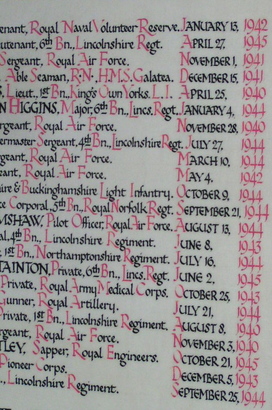 enant, Royal Naval Volunteer Reserve. JANUARY 13, 1942
utenant, 6th Bn., Lincolnshire Regt. APRIL 27, 1945
Sergeant, Royal Air Force. NOVEMBER 1, 1941
Able Seaman, R·N· H.M.S. Galatea. DECEMBER 15, 1941
Lieut., 1st Bn., King's Own Yorks. L.I. APRIL 25, 1940
N HIGGINS, Major, 6th Bn., Lincs. Regt. JANUARY 4, 1944
rgeant, Royal Air Force. NOVEMBER 28, 1940
ermaster Sergeant, 4th Bn., Lincolnshire Regt. JULY 27, 1944
rgeant, Royal Air Force. MARCH 10, 1944
eant, Royal Air Force. MAY 4, 1942
ire & Buckinghamshire Light Infantry. OCTOBER 9, 1944
ce Corporal, 5th Bn., Royal Norfolk Regt. SEPTEMBER 21, 1944
MSHAW, Pilot Officer, Royal Air Force. AUGUST 13, 1944
al, 4th Bn., Lincolnshire Regiment. JUNE 8, 1943
Bn., Northamptonshire Regiment. JULY 16, 1944
TAINTON, Private, 6th Bn., Lincs. Regt. JUNE 2, 1945
Private, Royal Army Medical Corps. OCTOBER 25, 1943
unner, Royal Artillery. JULY 21, 1944
Private, 1st Bn., Lincolnshire Regiment. AUGUST 8, 1940
ergeant, Royal Air Force. NOVEMBER 3, 1940
TLEY, Sapper, Royal Engineers. OCTOBER 21, 1945
Pioneer Corps. DECEMBER 5, 1943
., Lincolnshire Regiment. SEPTEMBER 25, 1944